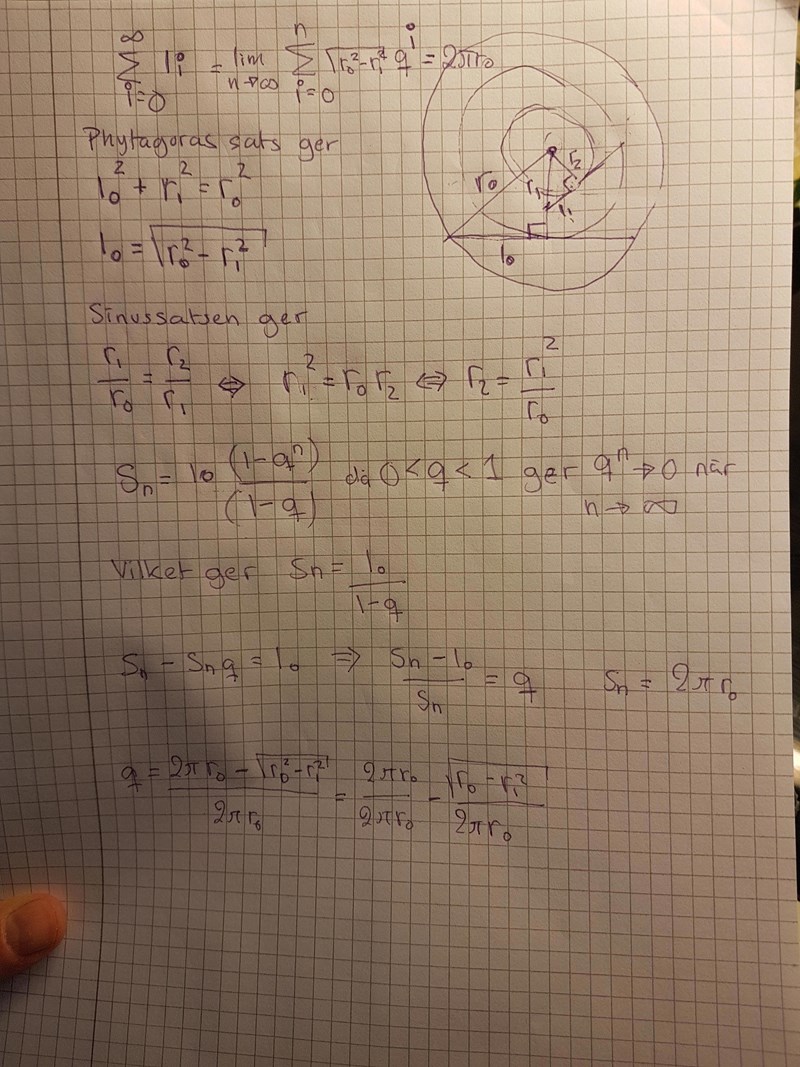 ∞ n
∑ l_i = lim ∑ √(r₀² - r₁²) q^i = 2πr₀
i=0 n→∞ i=0
Phytagoras sats ger
l₀² + r₁² = r₀²
l₀ = √(r₀² - r₁²)
r₀ r₁ r₂ l₁ l₀
Sinussatsen ger
r₁/r₀ = r₂/r₁ ⇔ r₁² = r₀ r₂ ⇔ r₂ = r₁²/r₀
Sₙ = l₀ (1-qⁿ)/(1-q) då 0<q<1 ger qⁿ→0 när
n→∞
Vilket ger Sn = l₀/(1-q)
Sₙ - Sₙq = l₀ ⇒ (Sn - l₀)/Sn = q Sₙ = 2πr₀
q = (2πr₀ - √(r₀² - r₁²))/(2πr₀) = 2πr₀/2πr₀ - √(r₀ - r₁²)/(2πr₀)